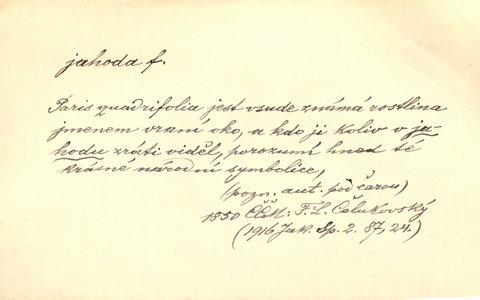 jahoda f.
Paris quadrifolia jest vsude známá rostlina
jmenem vraní oko, a kdo ji koliv v ja-
hodu zráti viděl, porozumí hned té
krásné národní symbolice,
(pozn. aut. pod čarou)
1850 ČČM: F. L. Čelakovský
(1916 Jak. Sp. 2. 87, 24.)